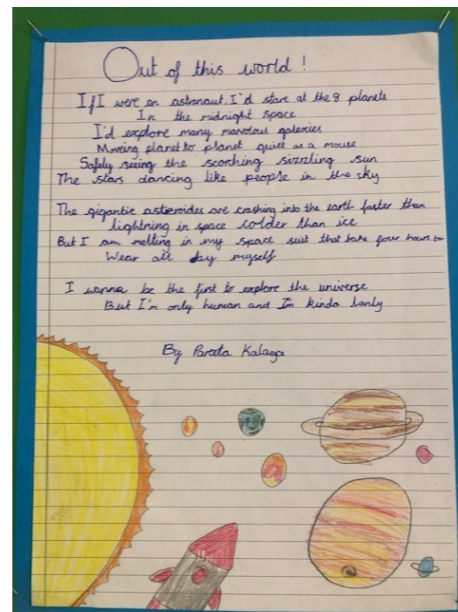 Out of this world!
If I were an astronaut. I'd stare at the 8 planets
In the midnight space
I'd explore many marvolous galexies
Moving planet to planet quiet as a mouse
Safely seeing the scorching sizzling sun
The stars dancing like people in the sky
The gigantic asteroides are crashing into the earth faster than
lightning in space colder than ice
But I am melting in my space suit that take four hours to
Wear all day myself
I wanna be the first to explore the universe
But I'm only human and I'm kinda lonly
By Pareeta Kalaga